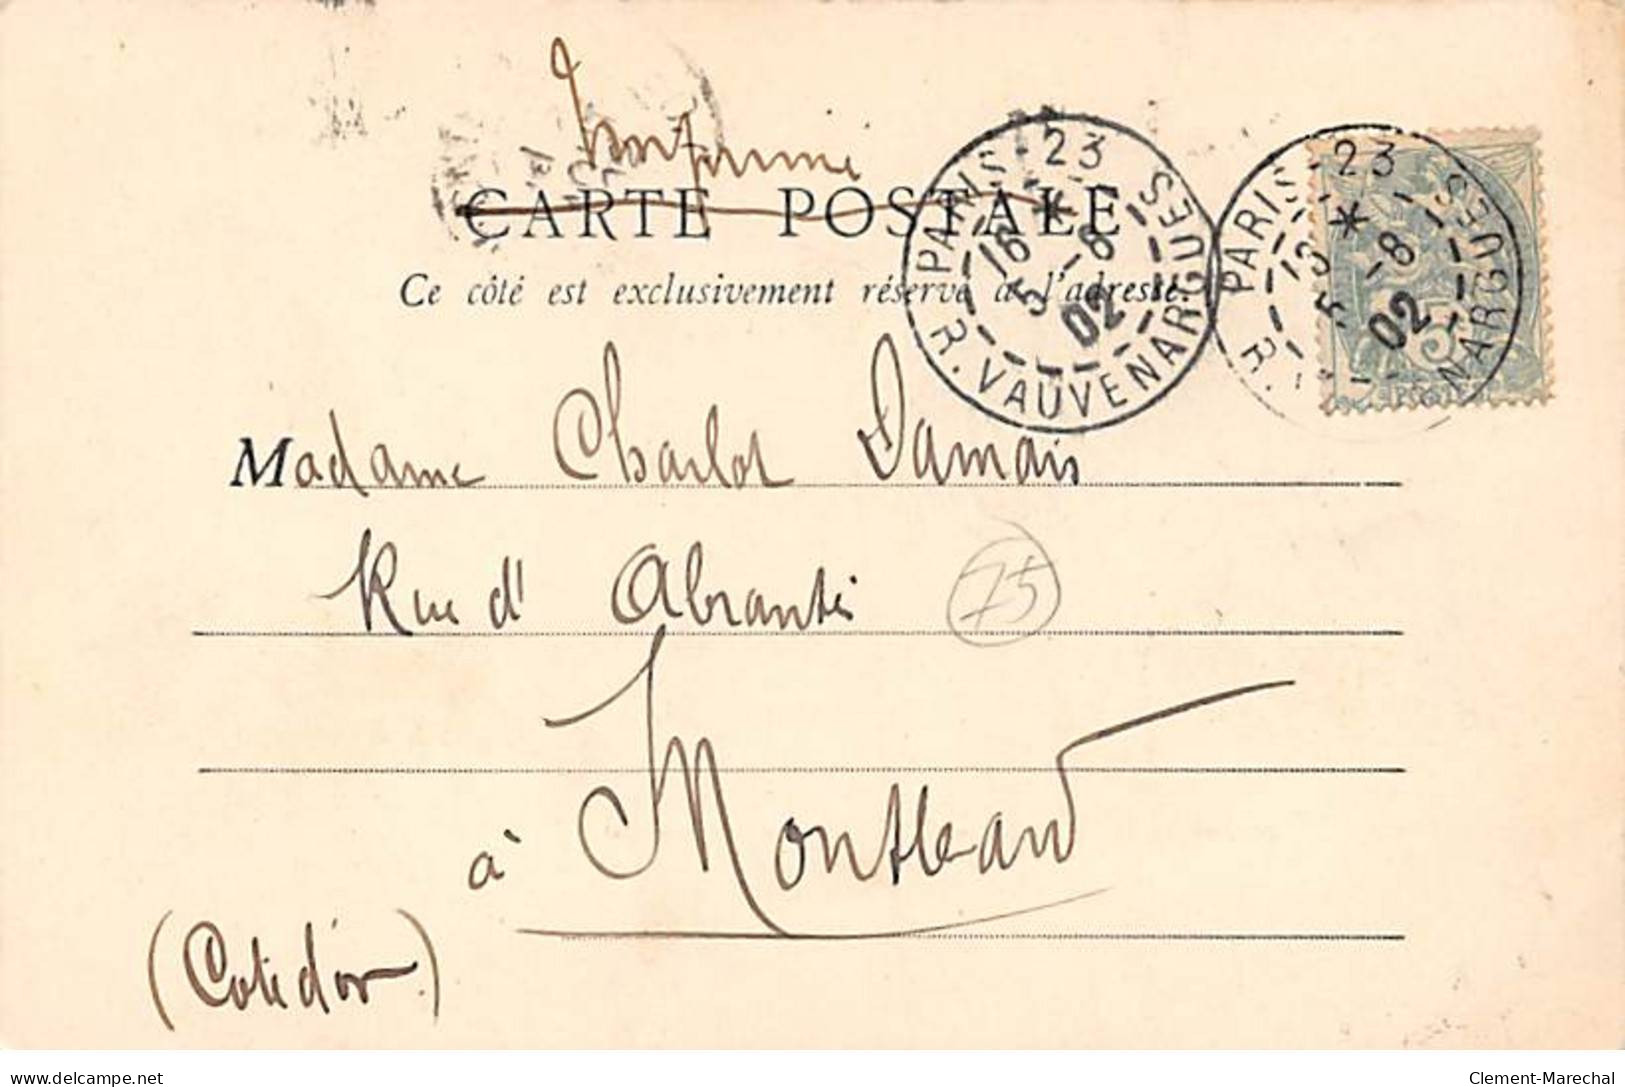 Imprimé
CARTE POSTALE
Ce côté est exclusivement réservé à l'adresse.
PARIS-23
16
5 -8
02
R. VAUVENARGUES
PARIS-23
13
5 -8
02
R. VAUVENARGUES
5
Madame Charlot Damais
Rue d' Abrantès
75
à Montbard
(Cote d'or)
delcampe.net
Clement-Marechal